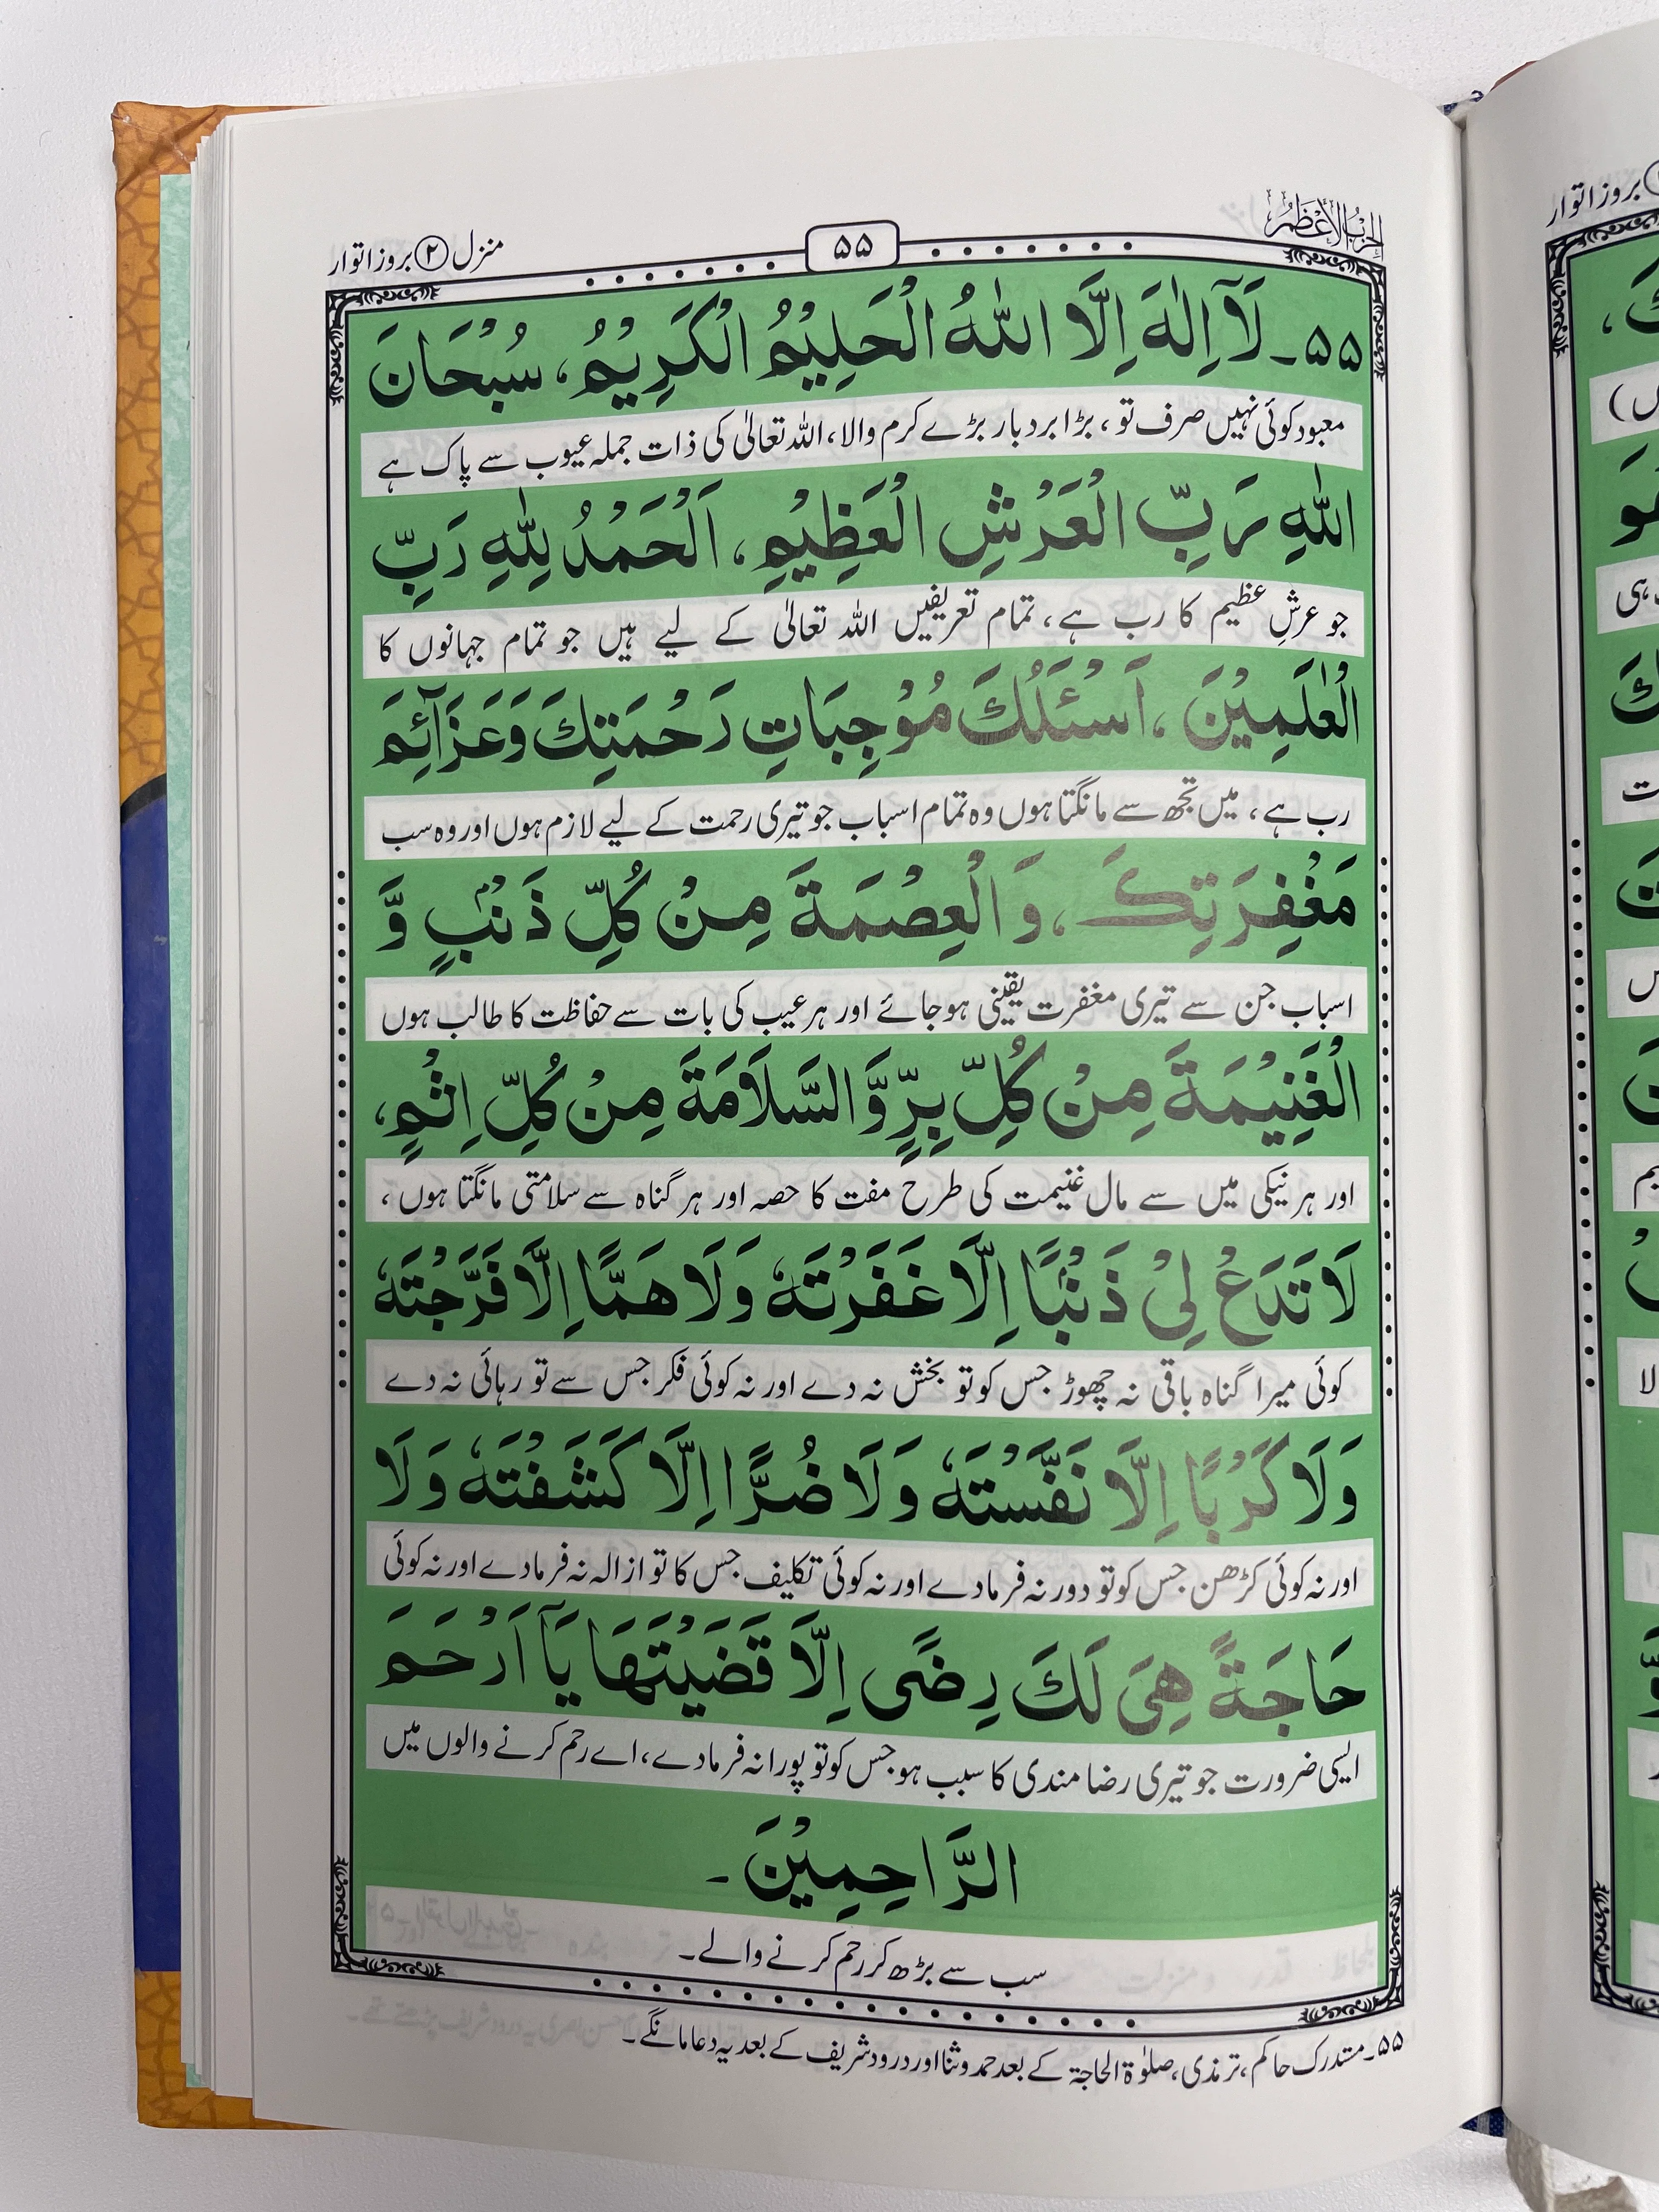 الحزب الأعظم
۵۵
منزل ۲ بروز اتوار
۵۵۔ لَآ اِلٰهَ اِلَّا اللّٰهُ الْحَلِيْمُ الْكَرِيْمُ، سُبْحَانَ
معبود کوئی نہیں صرف تو، بڑا بردبار بڑے کرم والا، اللہ تعالیٰ کی ذات جملہ عیوب سے پاک ہے
اللّٰهِ رَبِّ الْعَرْشِ الْعَظِيْمِ، اَلْحَمْدُ لِلّٰهِ رَبِّ
جو عرشِ عظیم کا رب ہے، تمام تعریفیں اللہ تعالیٰ کے لیے ہیں جو تمام جہانوں کا
الْعٰلَمِيْنَ، اَسْئَلُكَ مُوْجِبَاتِ رَحْمَتِكَ وَعَزَآئِمَ
رب ہے، میں تجھ سے مانگتا ہوں وہ تمام اسباب جو تیری رحمت کے لیے لازم ہوں اور وہ سب
مَغْفِرَتِكَ، وَ الْعِصْمَةَ مِنْ كُلِّ ذَنْۢبٍ وَّ
اسباب جن سے تیری مغفرت یقینی ہو جائے اور ہر عیب کی بات سے حفاظت کا طالب ہوں
الْغَنِيْمَةَ مِنْ كُلِّ بِرٍّ وَّ السَّلَامَةَ مِنْ كُلِّ اِثْمٍ،
اور ہر نیکی میں سے مال غنیمت کی طرح مفت کا حصہ اور ہر گناہ سے سلامتی مانگتا ہوں،
لَا تَدَعْ لِيْ ذَنْۢبًا اِلَّا غَفَرْتَهٗ وَلَا هَمًّا اِلَّا فَرَّجْتَهٗ
کوئی میرا گناہ باقی نہ چھوڑ جس کو تو بخش نہ دے اور نہ کوئی فکر جس سے تو رہائی نہ دے
وَلَا كَرْبًا اِلَّا نَفَّسْتَهٗ وَلَا ضُرًّا اِلَّا كَشَفْتَهٗ وَلَا
اور نہ کوئی کڑھن جس کو تو دور نہ فرمادے اور نہ کوئی تکلیف جس کا تو ازالہ نہ فرمادے اور نہ کوئی
حَاجَةً هِيَ لَكَ رِضًى اِلَّا قَضَيْتَهَا يَآ اَرْحَمَ
ایسی ضرورت جو تیری رضا مندی کا سبب ہو جس کو تو پورا نہ فرمادے، اے رحم کرنے والوں میں
الرَّاحِمِيْنَ۔
سب سے بڑھ کر رحم کرنے والے۔
۵۵۔ مستدرک حاکم، ترمذی، صلوٰۃ الحاجۃ کے بعد حمد و ثنا اور درود شریف کے بعد یہ دعا مانگے۔
بروز اتوار